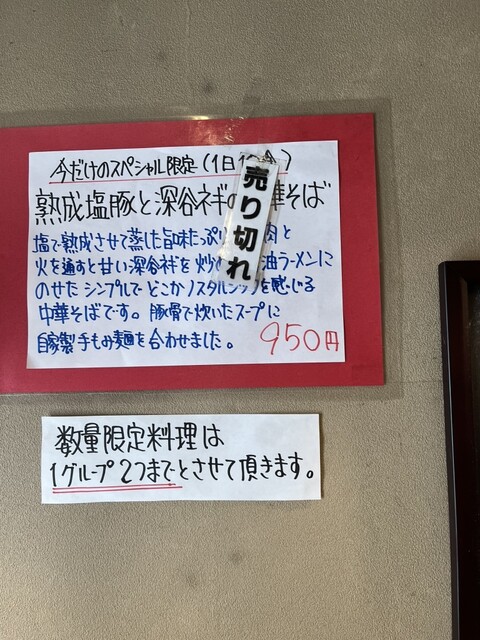 今だけのスペシャル限定(1日10食)
熟成塩豚と深谷ネギの中華そば
塩で熟成させて蒸した旨味たっぷり 肉と
火を通すと甘い深谷ネギを炒め 油ラーメンに
のせたシンプルでどこかノスタルジックを感じる
中華そばです。豚骨で炊いたスープに
自家製手もみ麺を合わせました。
950円
売り切れ
数量限定料理は
1グループ2つまでとさせて頂きます。